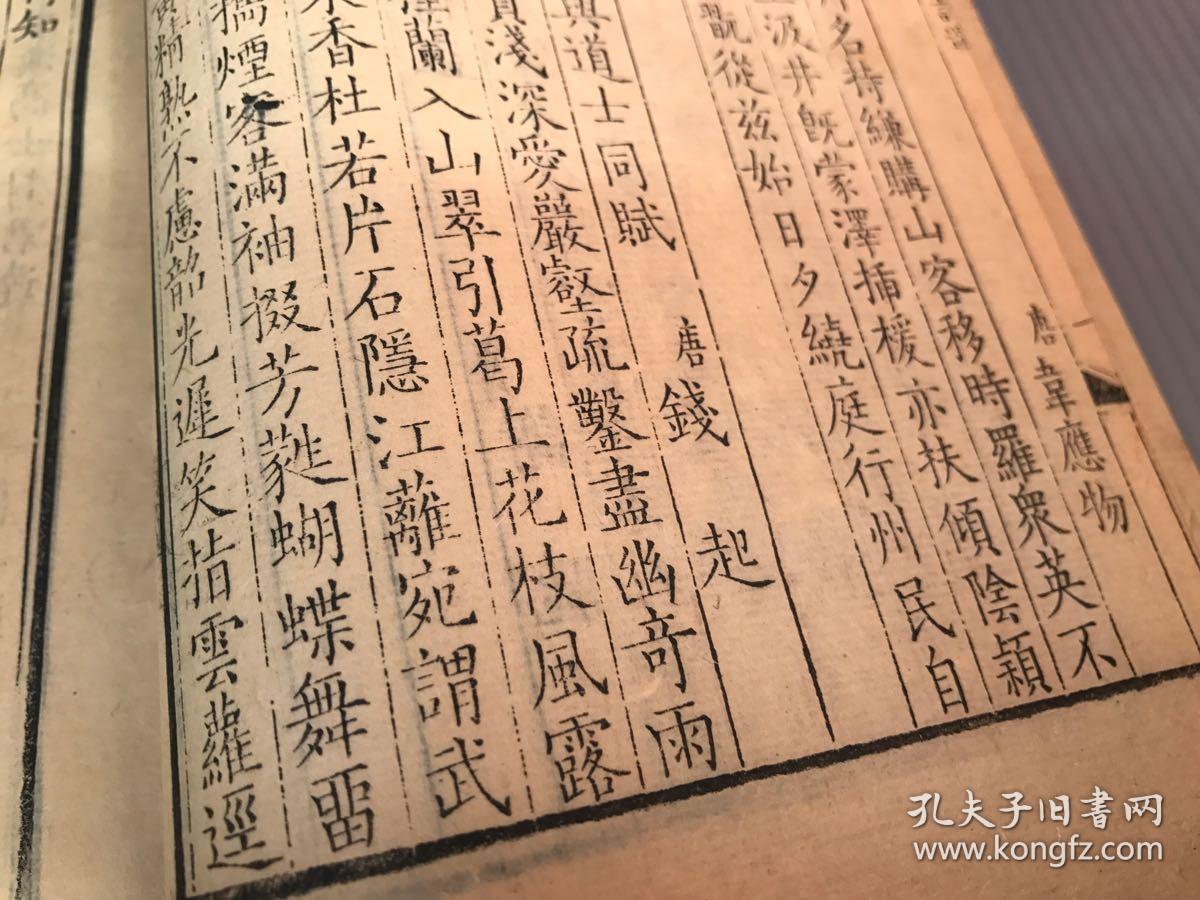 唐韋應物
名持縑購山客移時羅衆英不
汲井既蒙澤插楥亦扶傾陰穎
翫從茲始日夕繞庭行州民自
與道士同賦 唐錢起
淺深愛巖壑疏鑿盡幽奇雨
蘭入山翠引葛上花枝風露
香杜若片石隱江蘺宛謂武
擕煙客滿袖掇芳蕤蝴蝶舞畱
精熟不慮韶光遲笑指雲蘿逕
知
孔夫子旧书网
www.kongfz.com